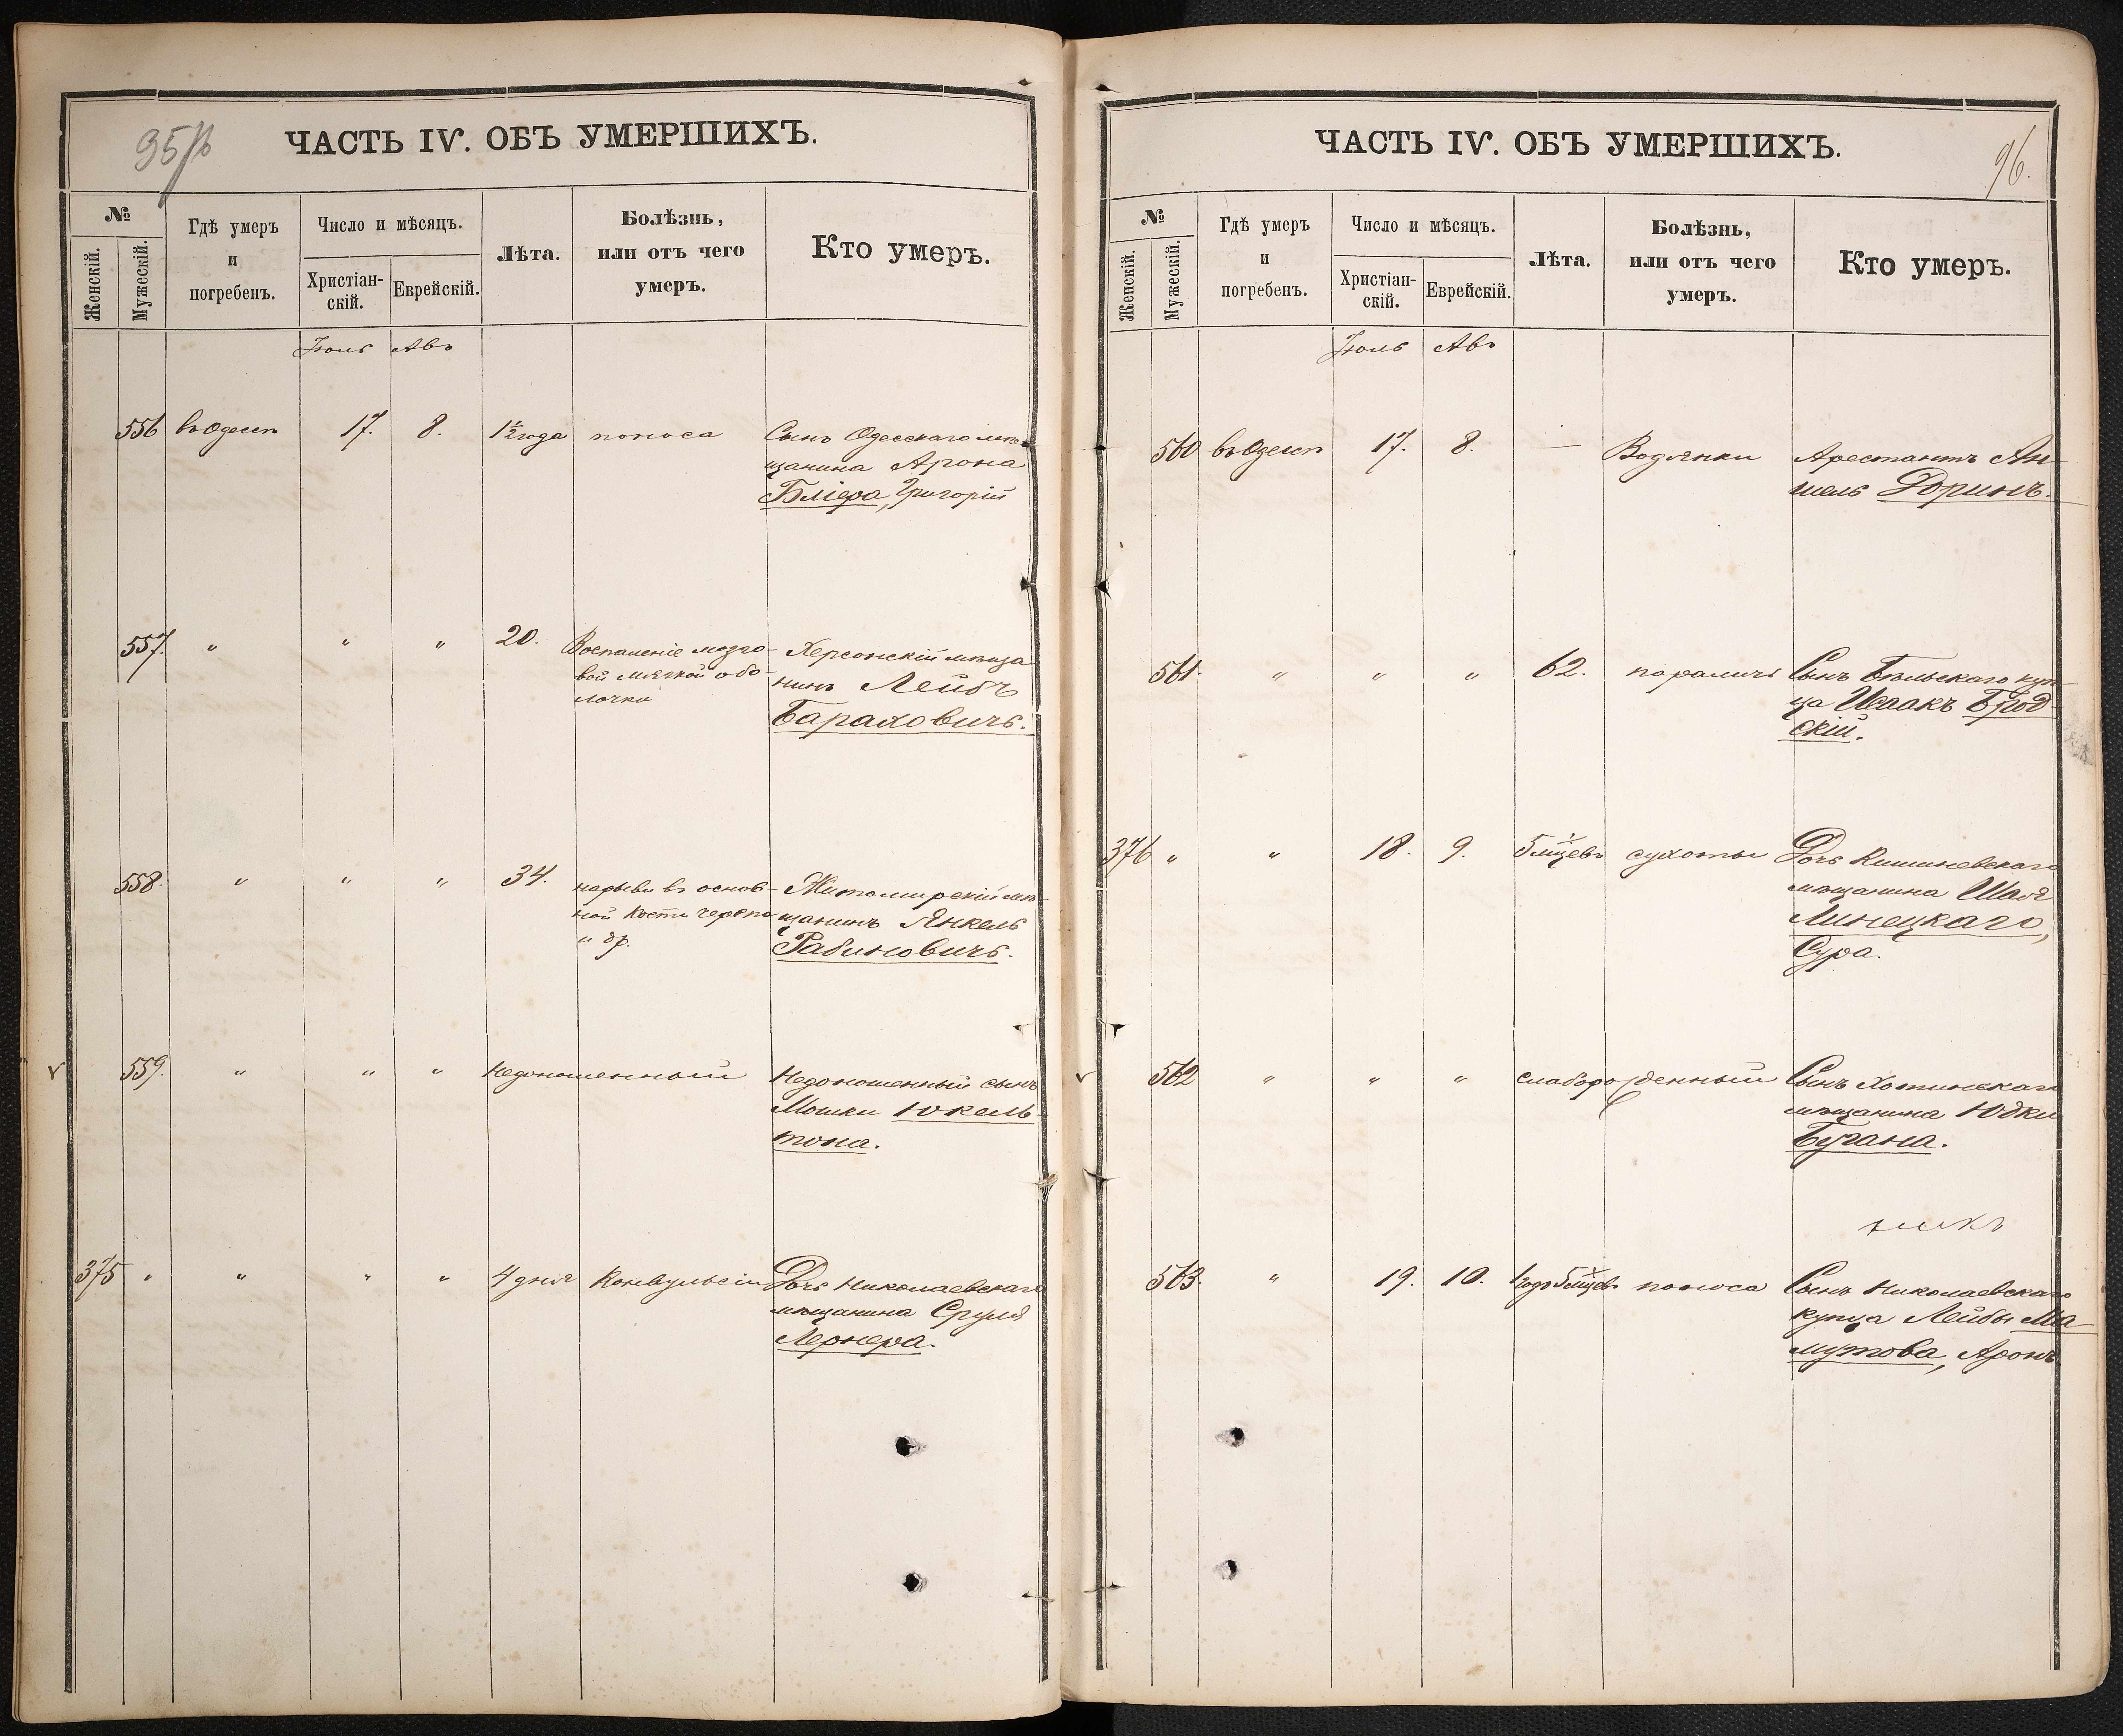 95/б
ЧАСТЬ IV. ОБЪ УМЕРШИХЪ.
№
Женскій.
Мужескій.
Гдѣ умеръ
и
погребенъ.
Число и мѣсяцъ.
Христіан-
скій.
Еврейскій.
Лѣта.
Болѣзнь,
или отъ чего
умеръ.
Кто умеръ.
Іюль Авъ
556 въ Одессѣ 17. 8. 1½ года поноса Сынъ Одесскаго мѣ-
щанина Арона
Бліера, Григорій
557. " " " 20. Воспаленіе мозго- Херсонскій мѣща
вой мягкой обо- нинъ Лейбъ
лочки Бараховичъ.
558. " " " 34. нарывы въ основ- Житомирскій мѣ-
ной кости черепа щанинъ Янкель
и др. Рабиновичъ.
559. " " " Недоношенный Недоношенный сынъ
Мошки Юкель-
тона.
375 " " " " 4 дня Конвульсіи Дочь Николаевскаго
мѣщанина Сруля
Лернера.
96.
ЧАСТЬ IV. ОБЪ УМЕРШИХЪ.
№
Женскій.
Мужескій.
Гдѣ умеръ
и
погребенъ.
Число и мѣсяцъ.
Христіан-
скій.
Еврейскій.
Лѣта.
Болѣзнь,
или отъ чего
умеръ.
Кто умеръ.
Іюль Авъ
560 въ Одессѣ 17. 8. — Водянки Арестантъ Ан-
шель Доринъ.
561. " " " 62. параличъ Сынъ Бѣльскаго куп-
ца Исаакъ Брод-
скій.
376 " " 18. 9. 5 мцевъ сухоты Дочь Кишиневскаго
мѣщанина Шая
Линецкаго,
Сура.
562 " " " слаборожденный Сынъ Хотинскаго
мѣщанина Юдки
Бугана.
563. " 19. 10. 1 годъ 5 мцевъ поноса Сынъ Николаевскаго
купца Лейбы Ма-
мутова, Аронъ